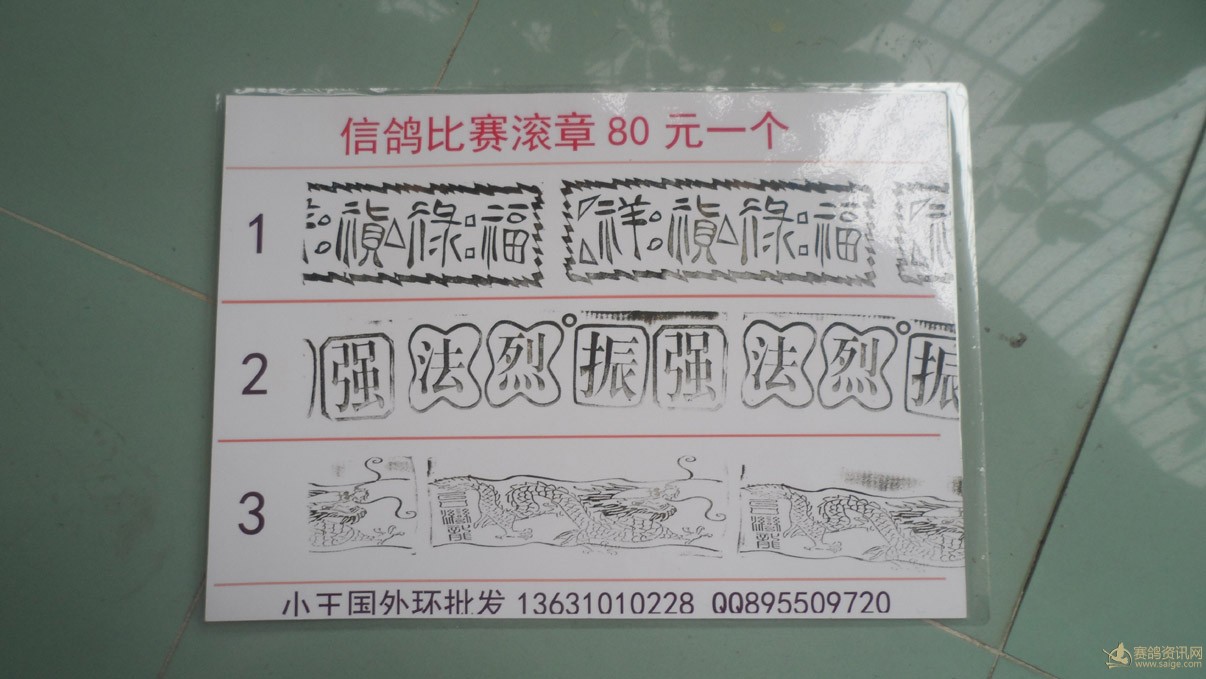 信鸽比赛滚章 80 元一个
1 禎祿福 祥禎祿福
2 强法烈振强法烈振
3
小王国外环批发 13631010228 QQ895509720
赛鸽资讯网
www.saige.com